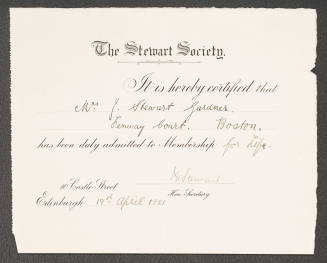 The Stewart Society.
It is hereby certified that
Mrs J. Stewart Gardner.
Fenway Court. Boston.
has been duly admitted to Membership for Life.
Stewart
10 Castle Street
Hon. Secretary
Edinburgh 19th April 1921